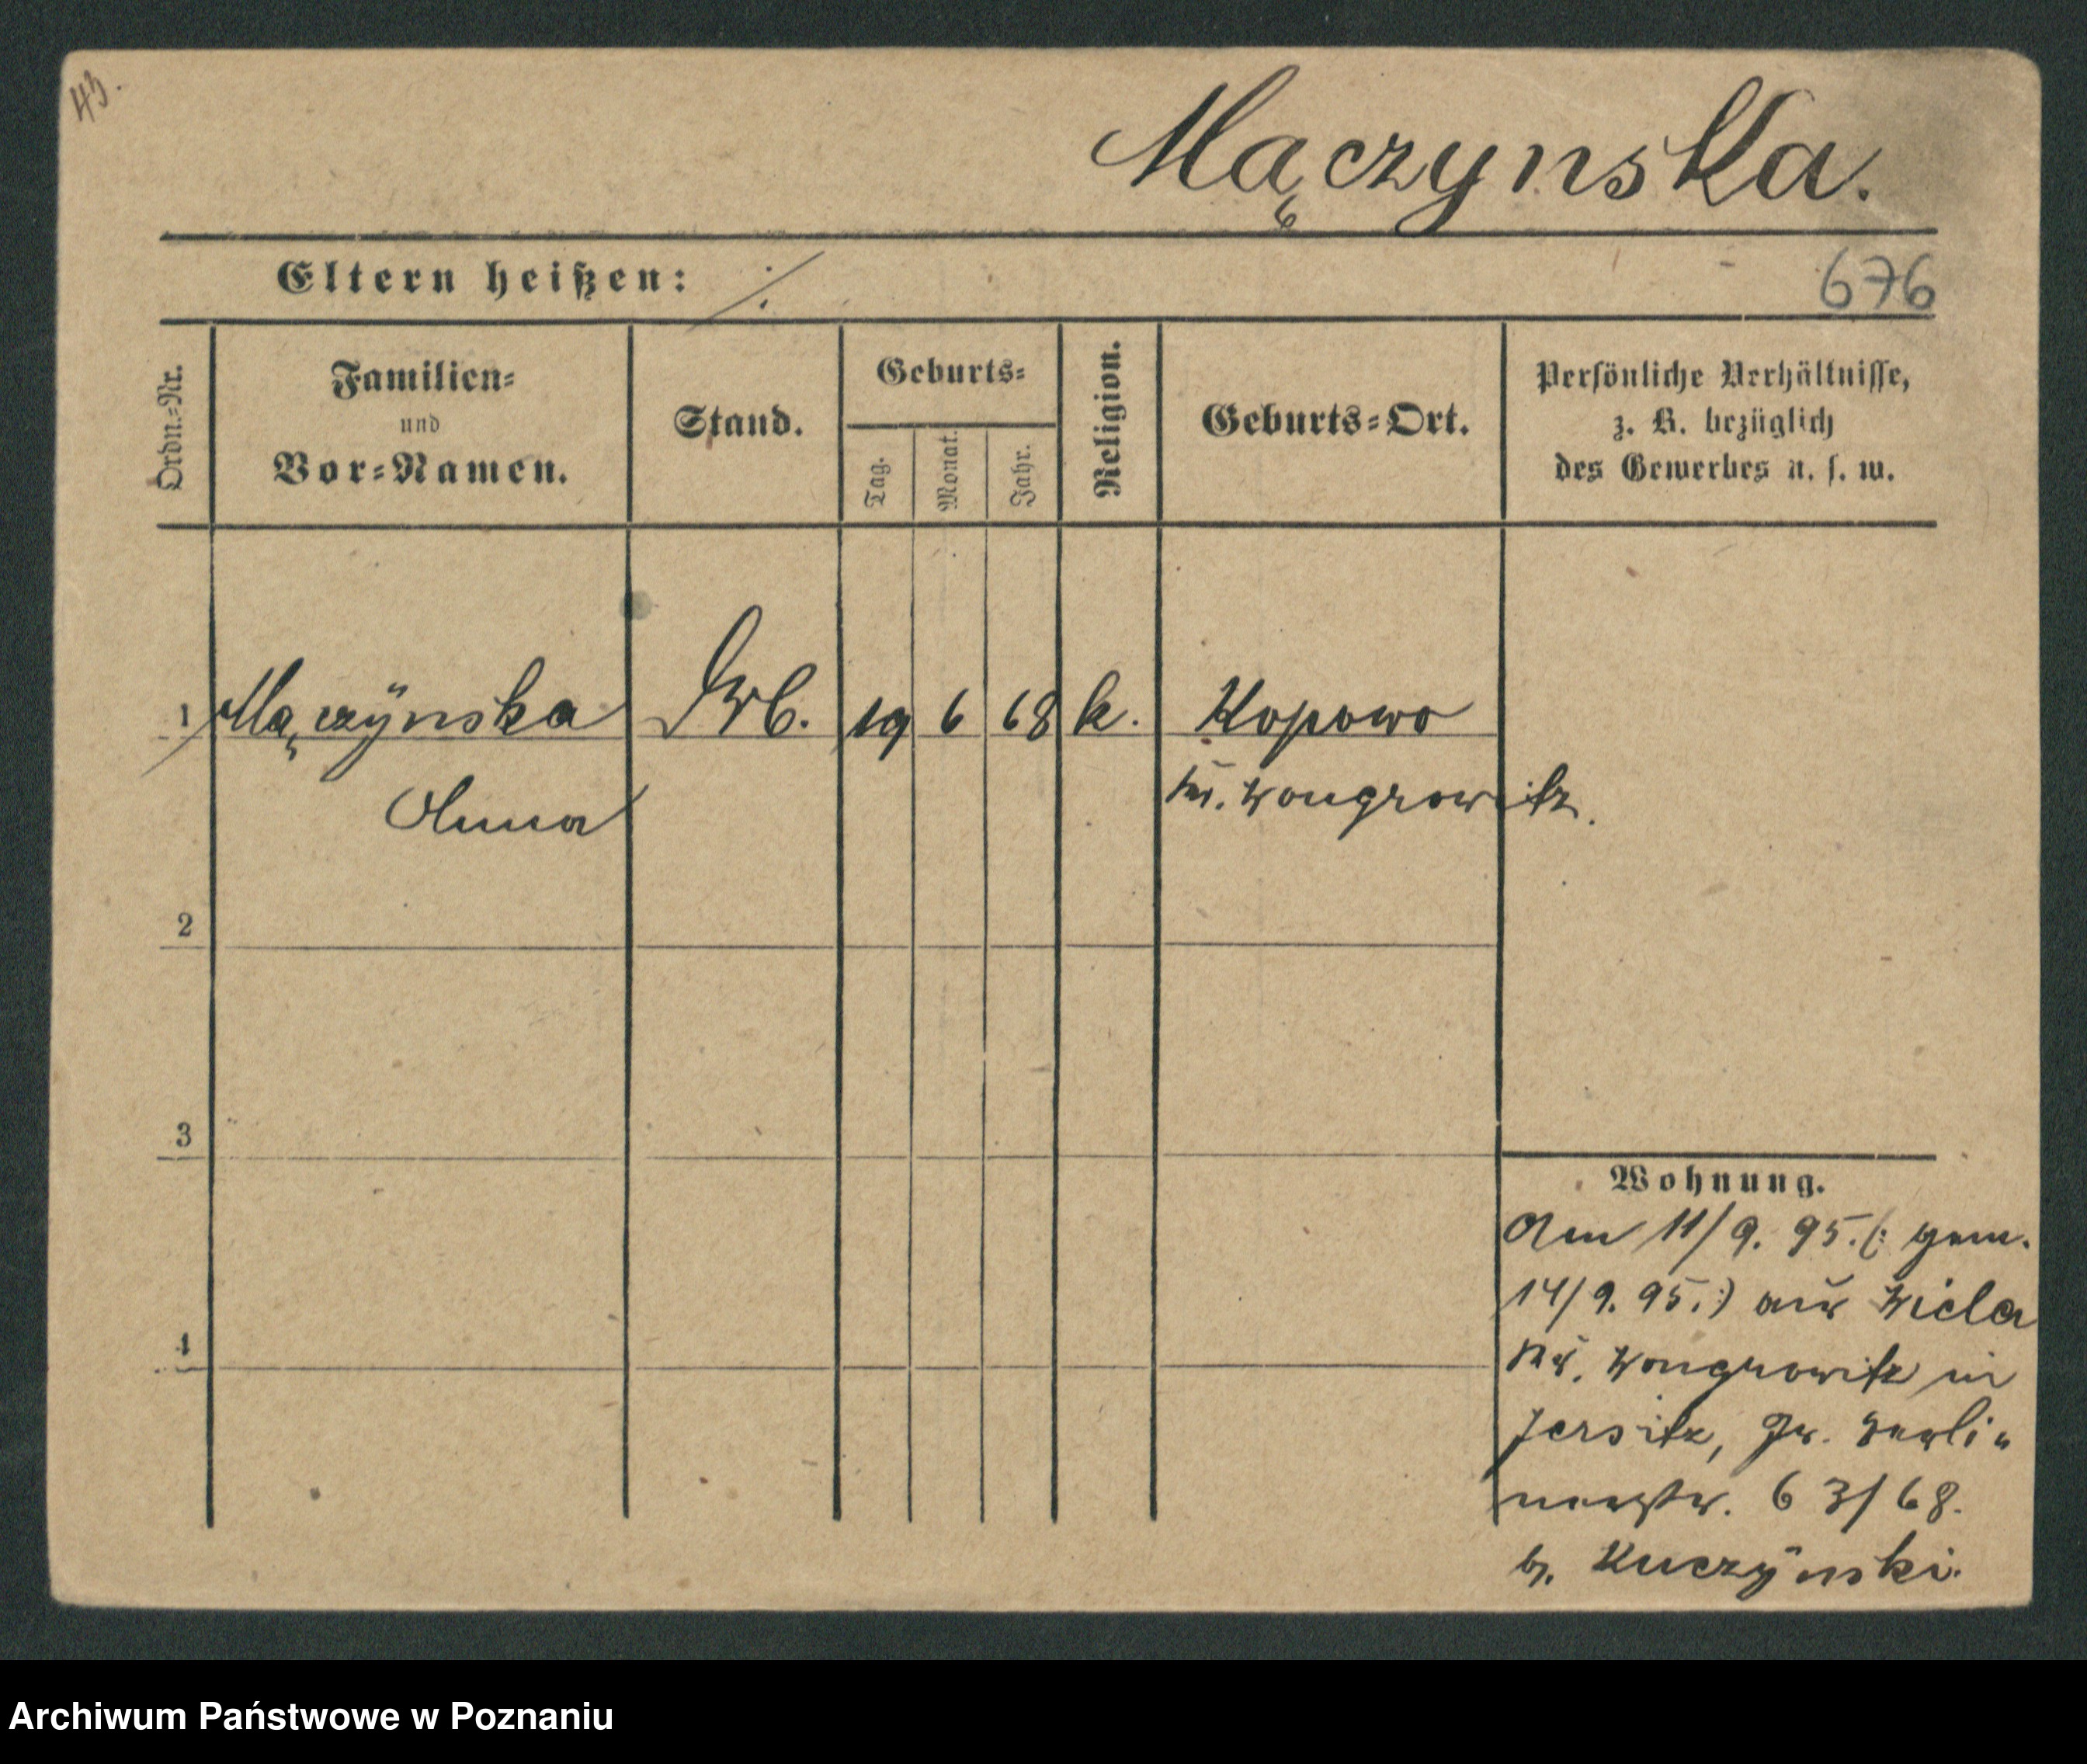 43.
Mączynska.
Eltern heißen: ./.
676
Ordn.=Nr.
Familien=
und
Vor=Namen.
Stand.
Geburts=
Tag.
Monat.
Jahr.
Religion.
Geburts=Ort.
Persönliche Verhältnisse,
z. B. bezüglich
des Gewerbes u. s. w.
1 Mączÿnska 19 6 68 k. Kopowo
Anna Kr. Wongrowitz.
2
3
4
Wohnung.
Am 11/9. 95. (: gem.
14/9. 95. :) aus Wiela
Kr. Wongrowitz in
Jersitz, Gr. Berli=
nerstr. 63/68.
b. Kuczÿnski.
Archiwum Państwowe w Poznaniu